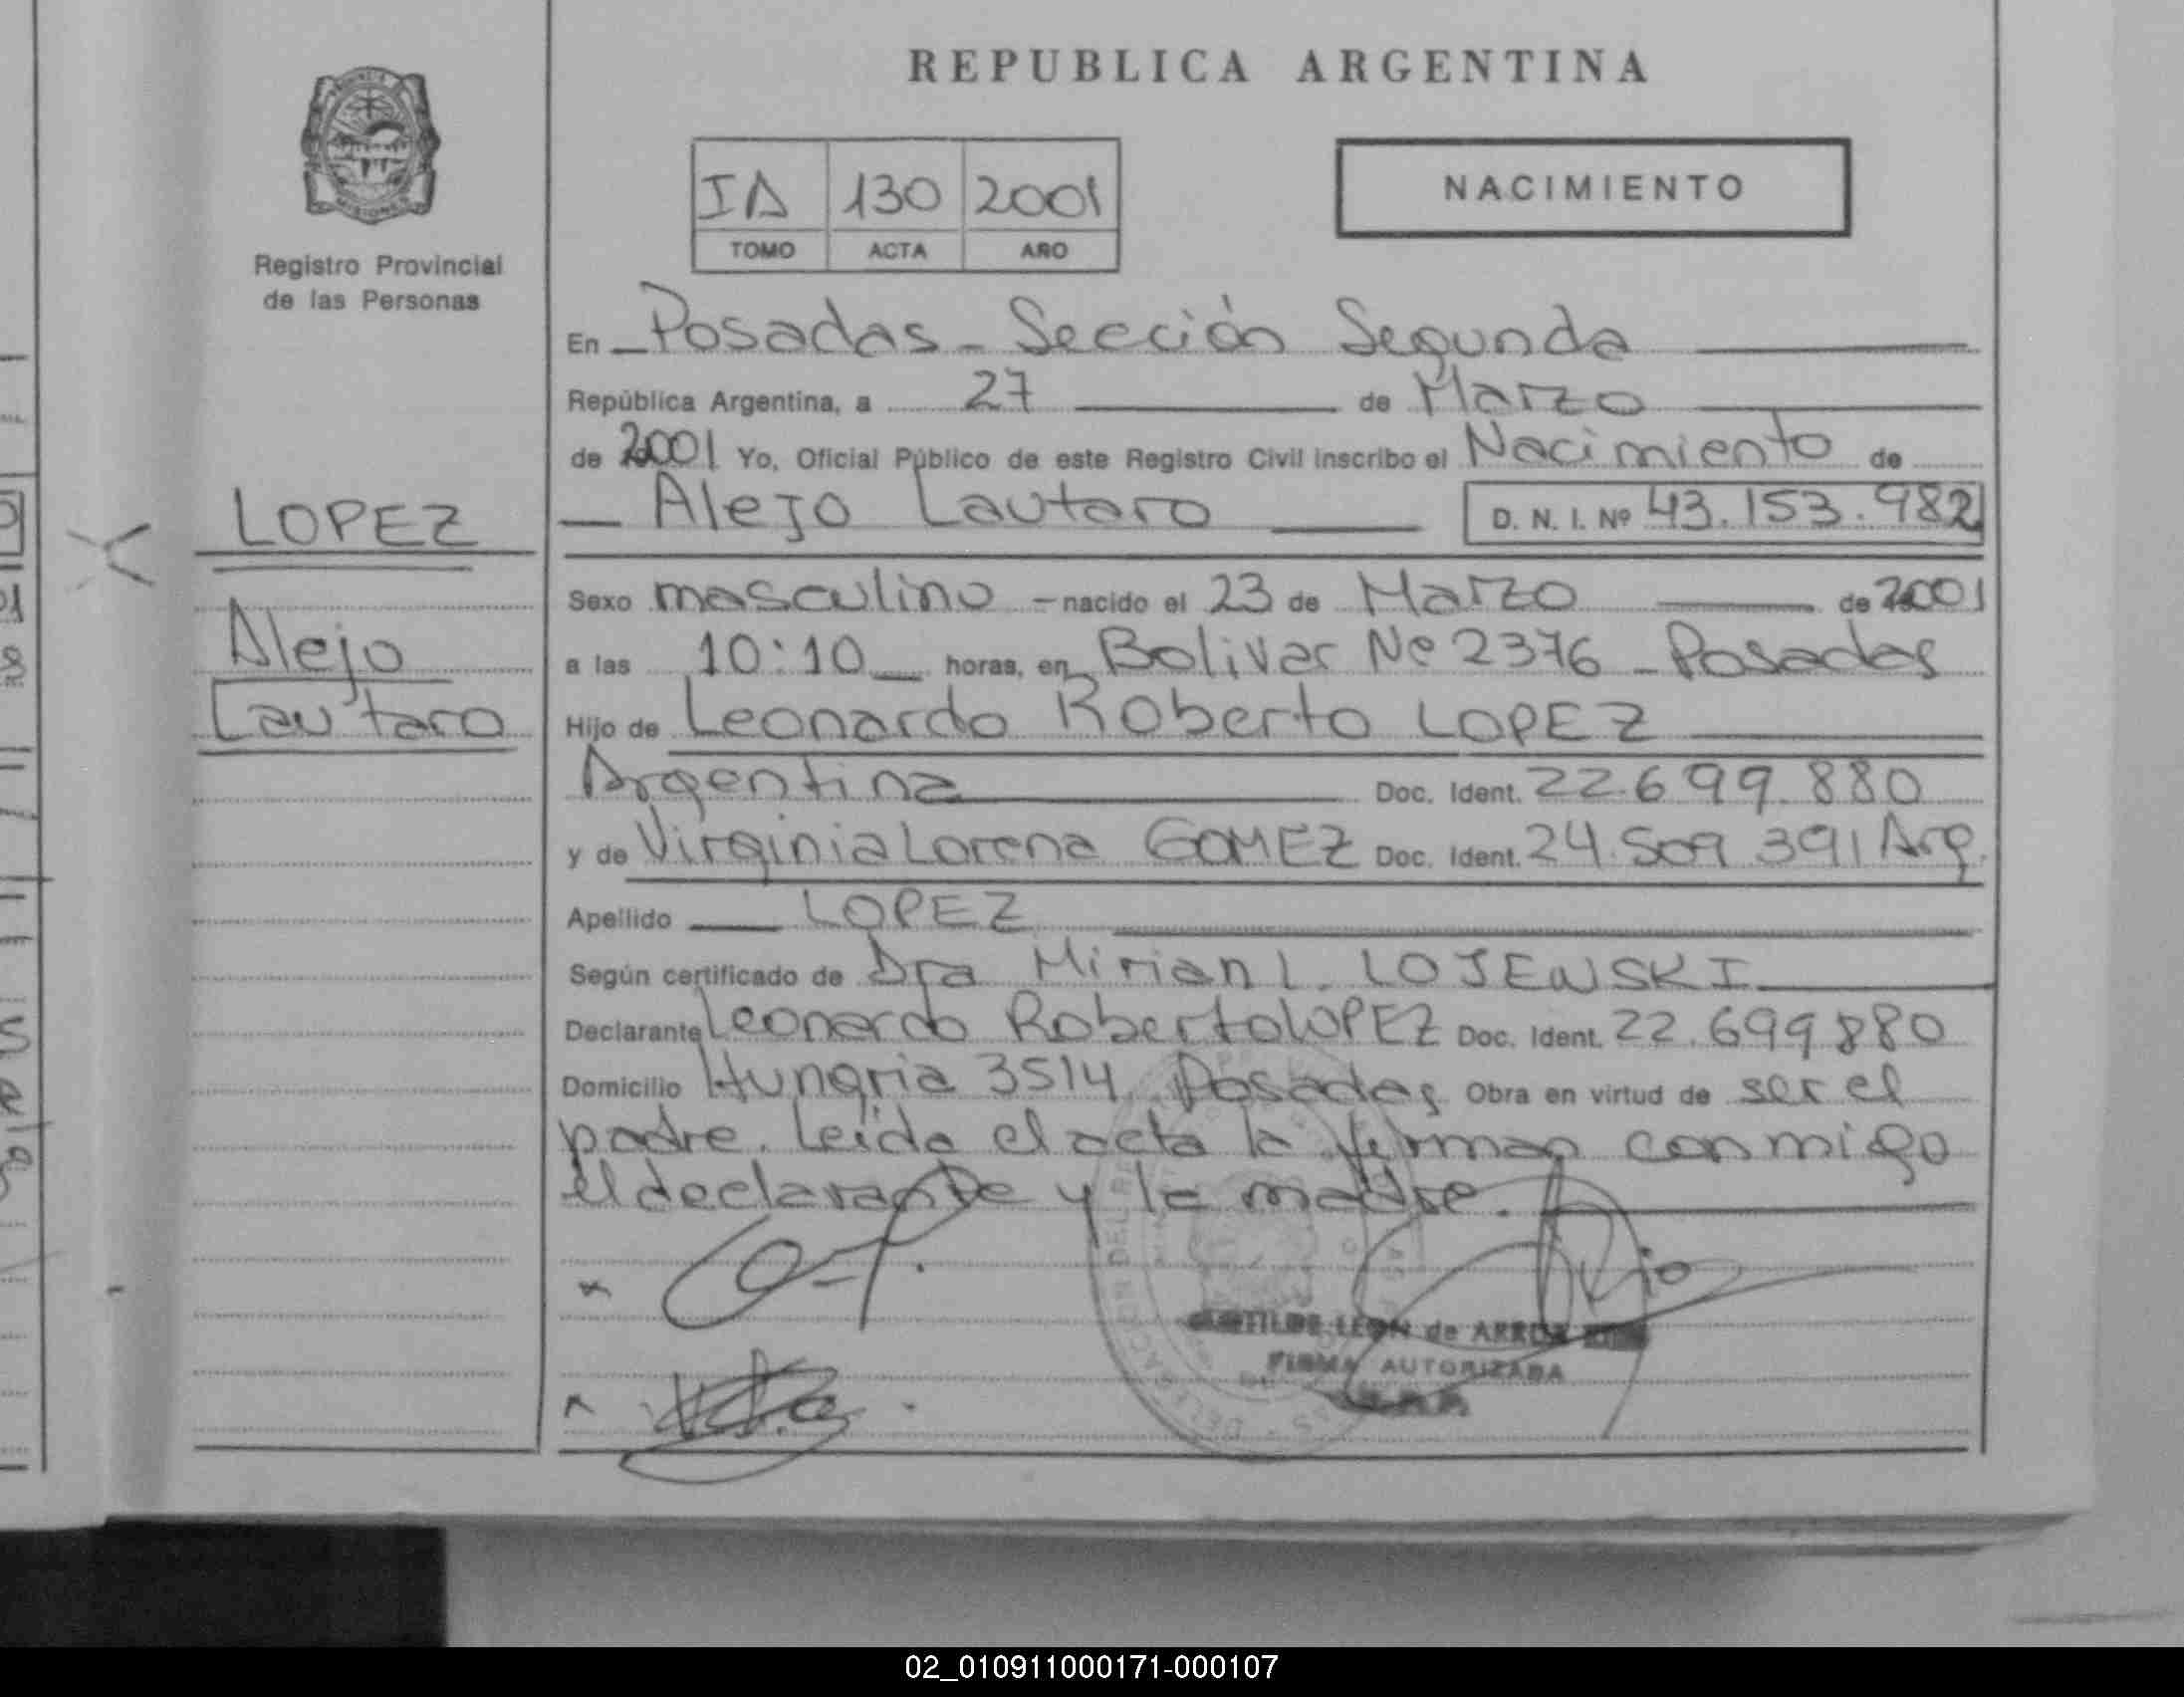 REPUBLICA ARGENTINA
PROVINCIA
MISIONES
Registro Provincial
de las Personas
IA 130 2001
TOMO ACTA AÑO
NACIMIENTO
En Posadas - Sección Segunda
República Argentina, a 27 de Marzo
de 2001 Yo, Oficial Público de este Registro Civil inscribo el Nacimiento de
Alejo Lautaro D. N. I. Nº 43.153.982
LOPEZ
Alejo
Lautaro
Sexo masculino - nacido el 23 de Marzo de 2001
a las 10:10 horas, en Bolivar Nº 2376 - Posadas
Hijo de Leonardo Roberto LOPEZ
Argentina Doc. Ident. 22.699.880
y de Virginia Lorena GOMEZ Doc. Ident. 24.509.391 Arg.
Apellido LOPEZ
Según certificado de Dra Mirian L. LOJEWSKI
Declarante Leonardo Roberto LOPEZ Doc. Ident. 22.699880
Domicilio Hungria 3514 Posadas Obra en virtud de ser el
padre. Leida el acta la firman conmigo
el declarante y la madre.
LEON de
FIRMA AUTORIZADA
02_010911000171-000107